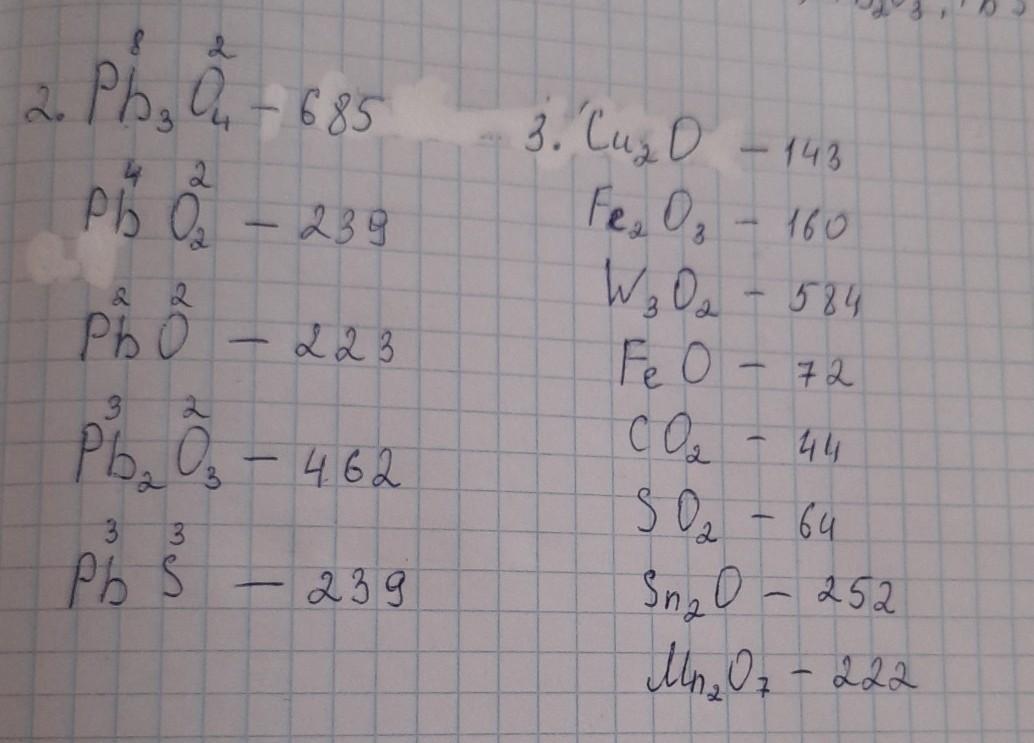 2. Pb₃⁸ O₄² - 685
Pb⁴ O₂² - 239
Pb² O² - 223
Pb₂³ O₃² - 462
Pb³ S³ - 239
3. Cu₂O - 143
Fe₂O₃ - 160
W₃O₂ - 584
FeO - 72
CO₂ - 44
SO₂ - 64
Sn₂O - 252
Mn₂O₇ - 222